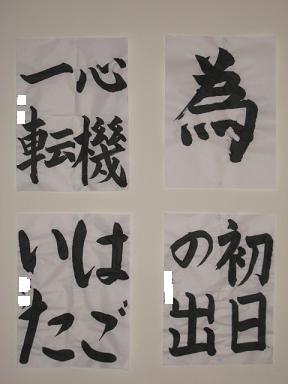 心機
一転
為
はご
いた
初日
の出